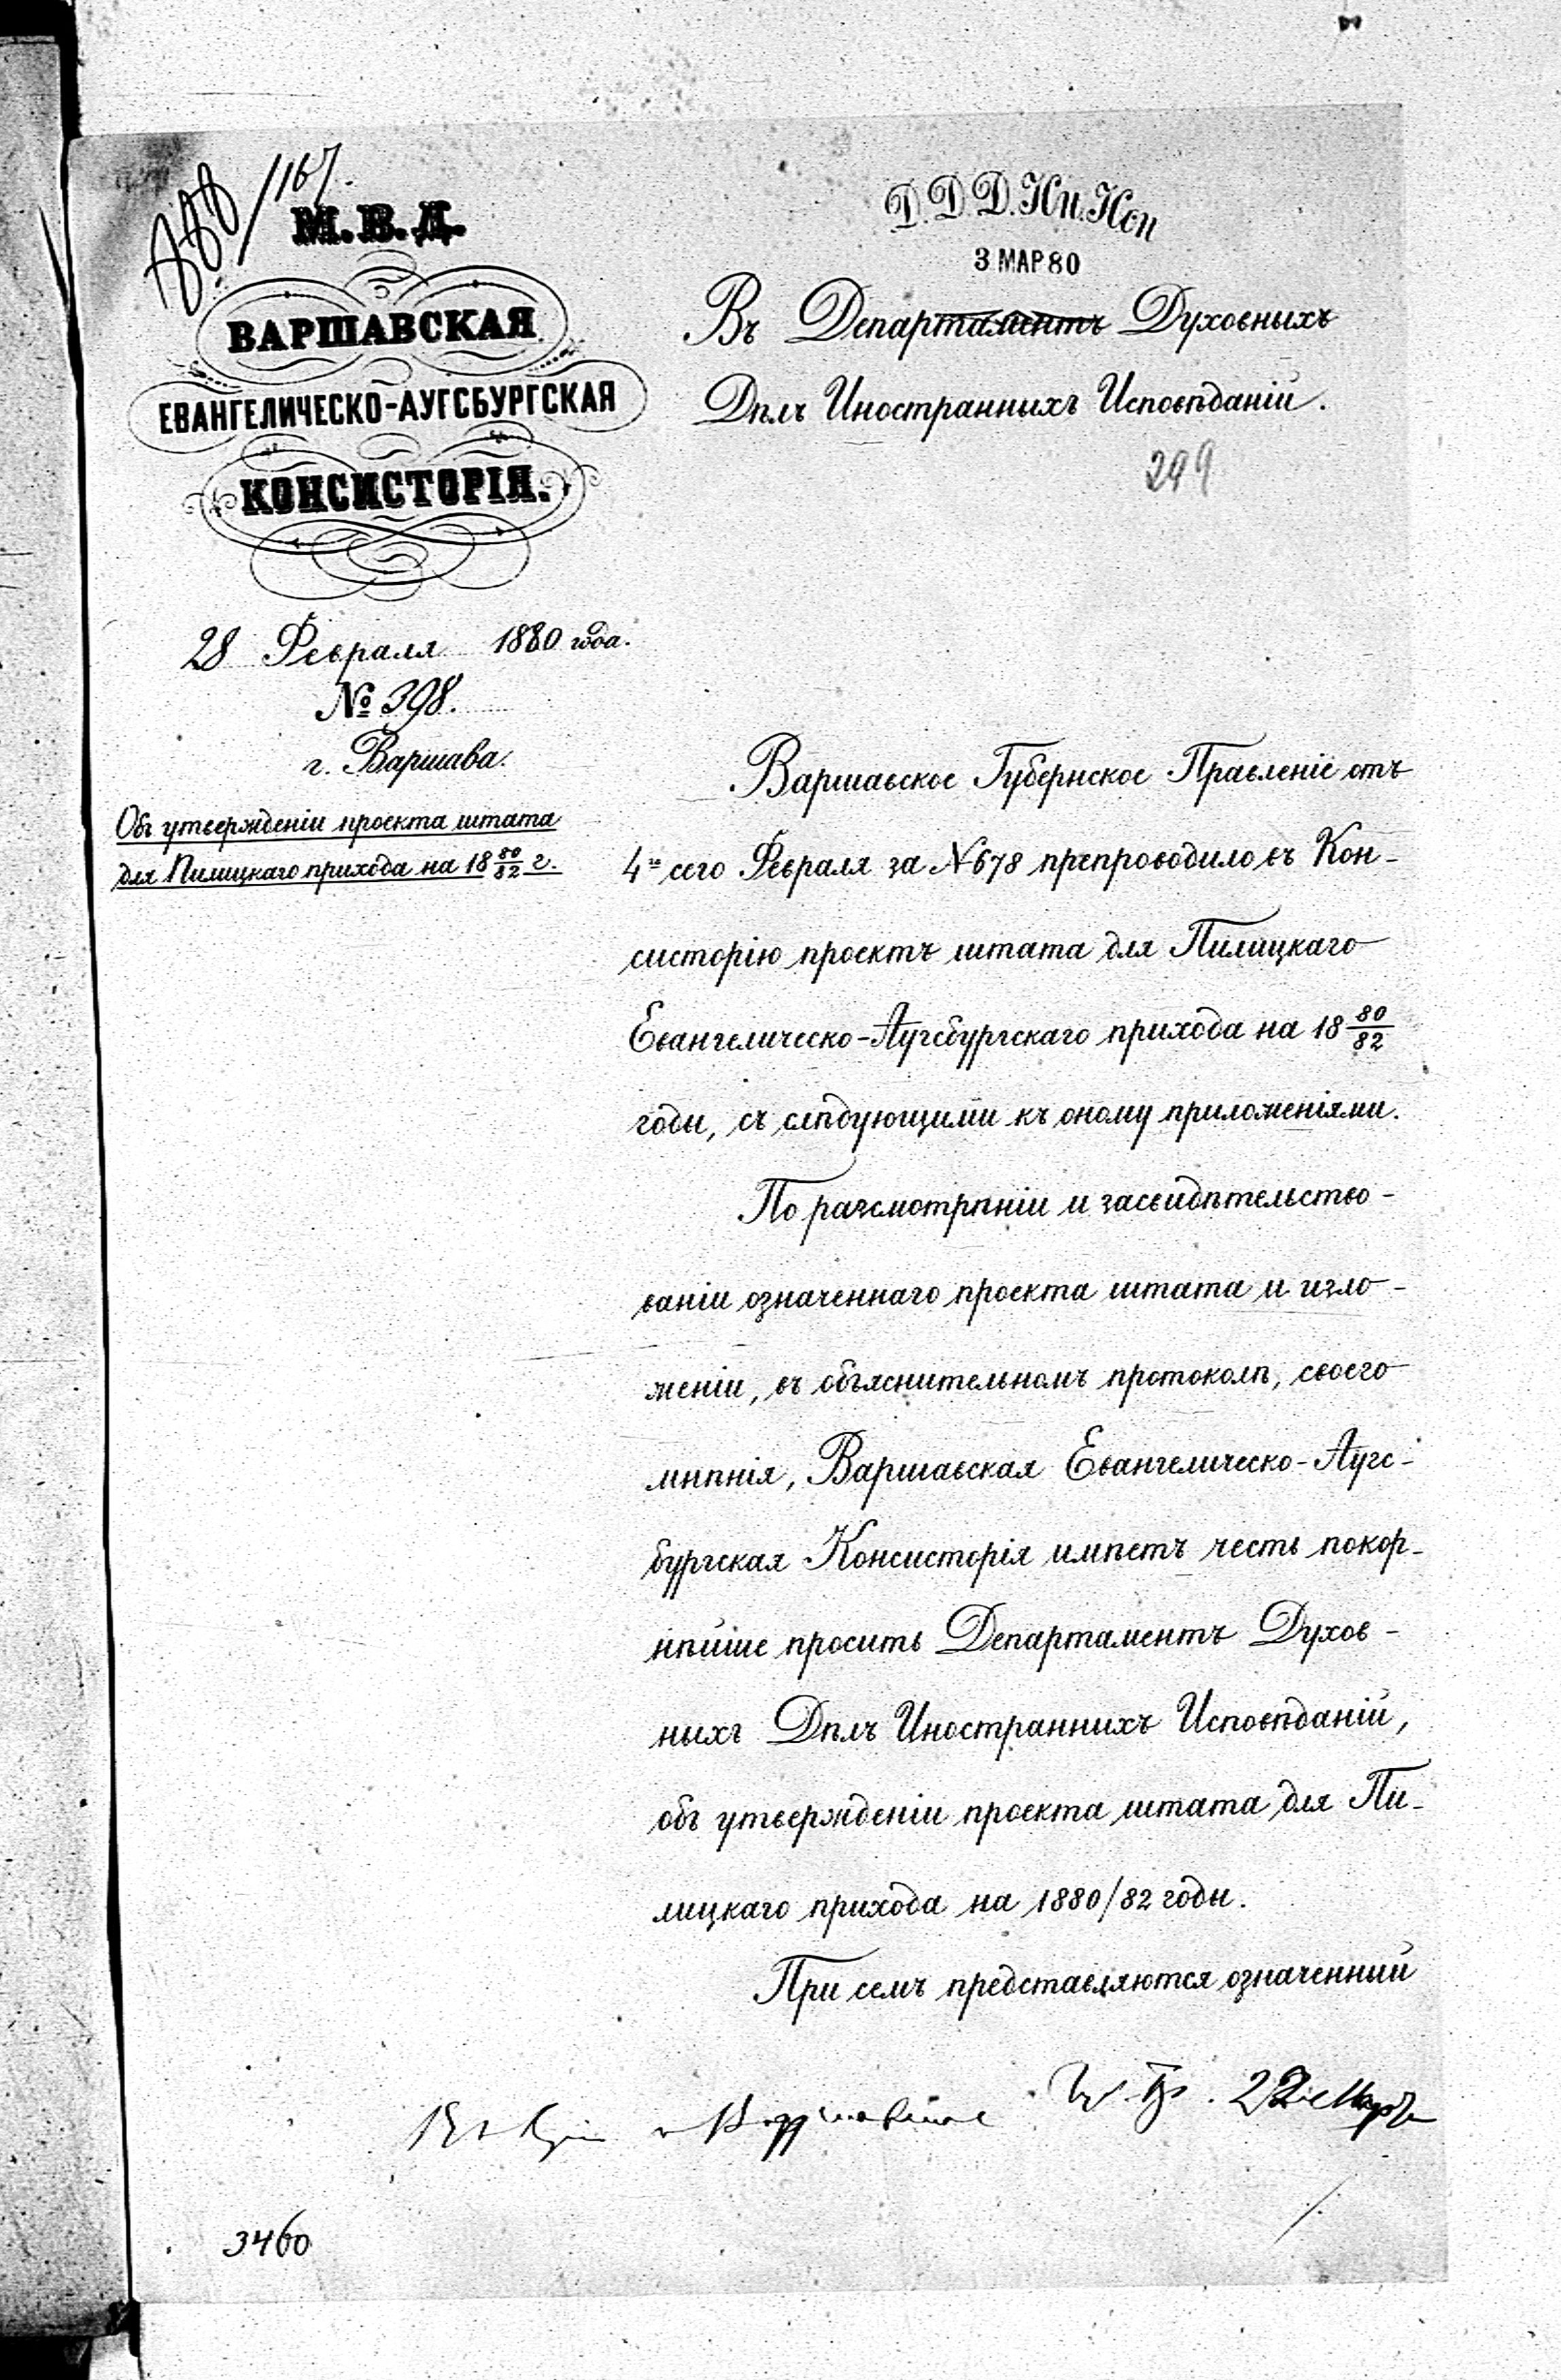 М. В. Д.
ВАРШАВСКАЯ
ЕВАНГЕЛИЧЕСКО-АУГСБУРГСКАЯ
КОНСИСТОРІЯ.
28 Февраля 1880 года.
№ 398.
г. Варшава.
Объ утвержденіи проекта штата
для Пилицкаго прихода на 18 80/82 г.
Д. Д. Д. Ин. Исп
3 МАР 80
Въ Департаментъ Духовныхъ
Дѣлъ Иностранныхъ Исповѣданій.
249
Варшавское Губернское Правленіе отъ
4го сего Февраля за № 678 препроводило въ Кон-
систорію проектъ штата для Пилицкаго
Евангелическо-Аугсбургскаго прихода на 18 80/82
годы, съ слѣдующими къ оному приложеніями.
По разсмотрѣніи и засвидѣтельство-
ваніи означеннаго проекта штата и изло-
женіи, въ объяснительномъ протоколѣ, своего
мнѣнія, Варшавская Евангелическо-Аугс-
бургская Консисторія имѣетъ честь покор-
нѣйше просить Департаментъ Духов-
ныхъ Дѣлъ Иностранныхъ Исповѣданій,
объ утвержденіи проекта штата для Пи-
лицкаго прихода на 1880/82 годы.
При семъ представляются означенный
3460